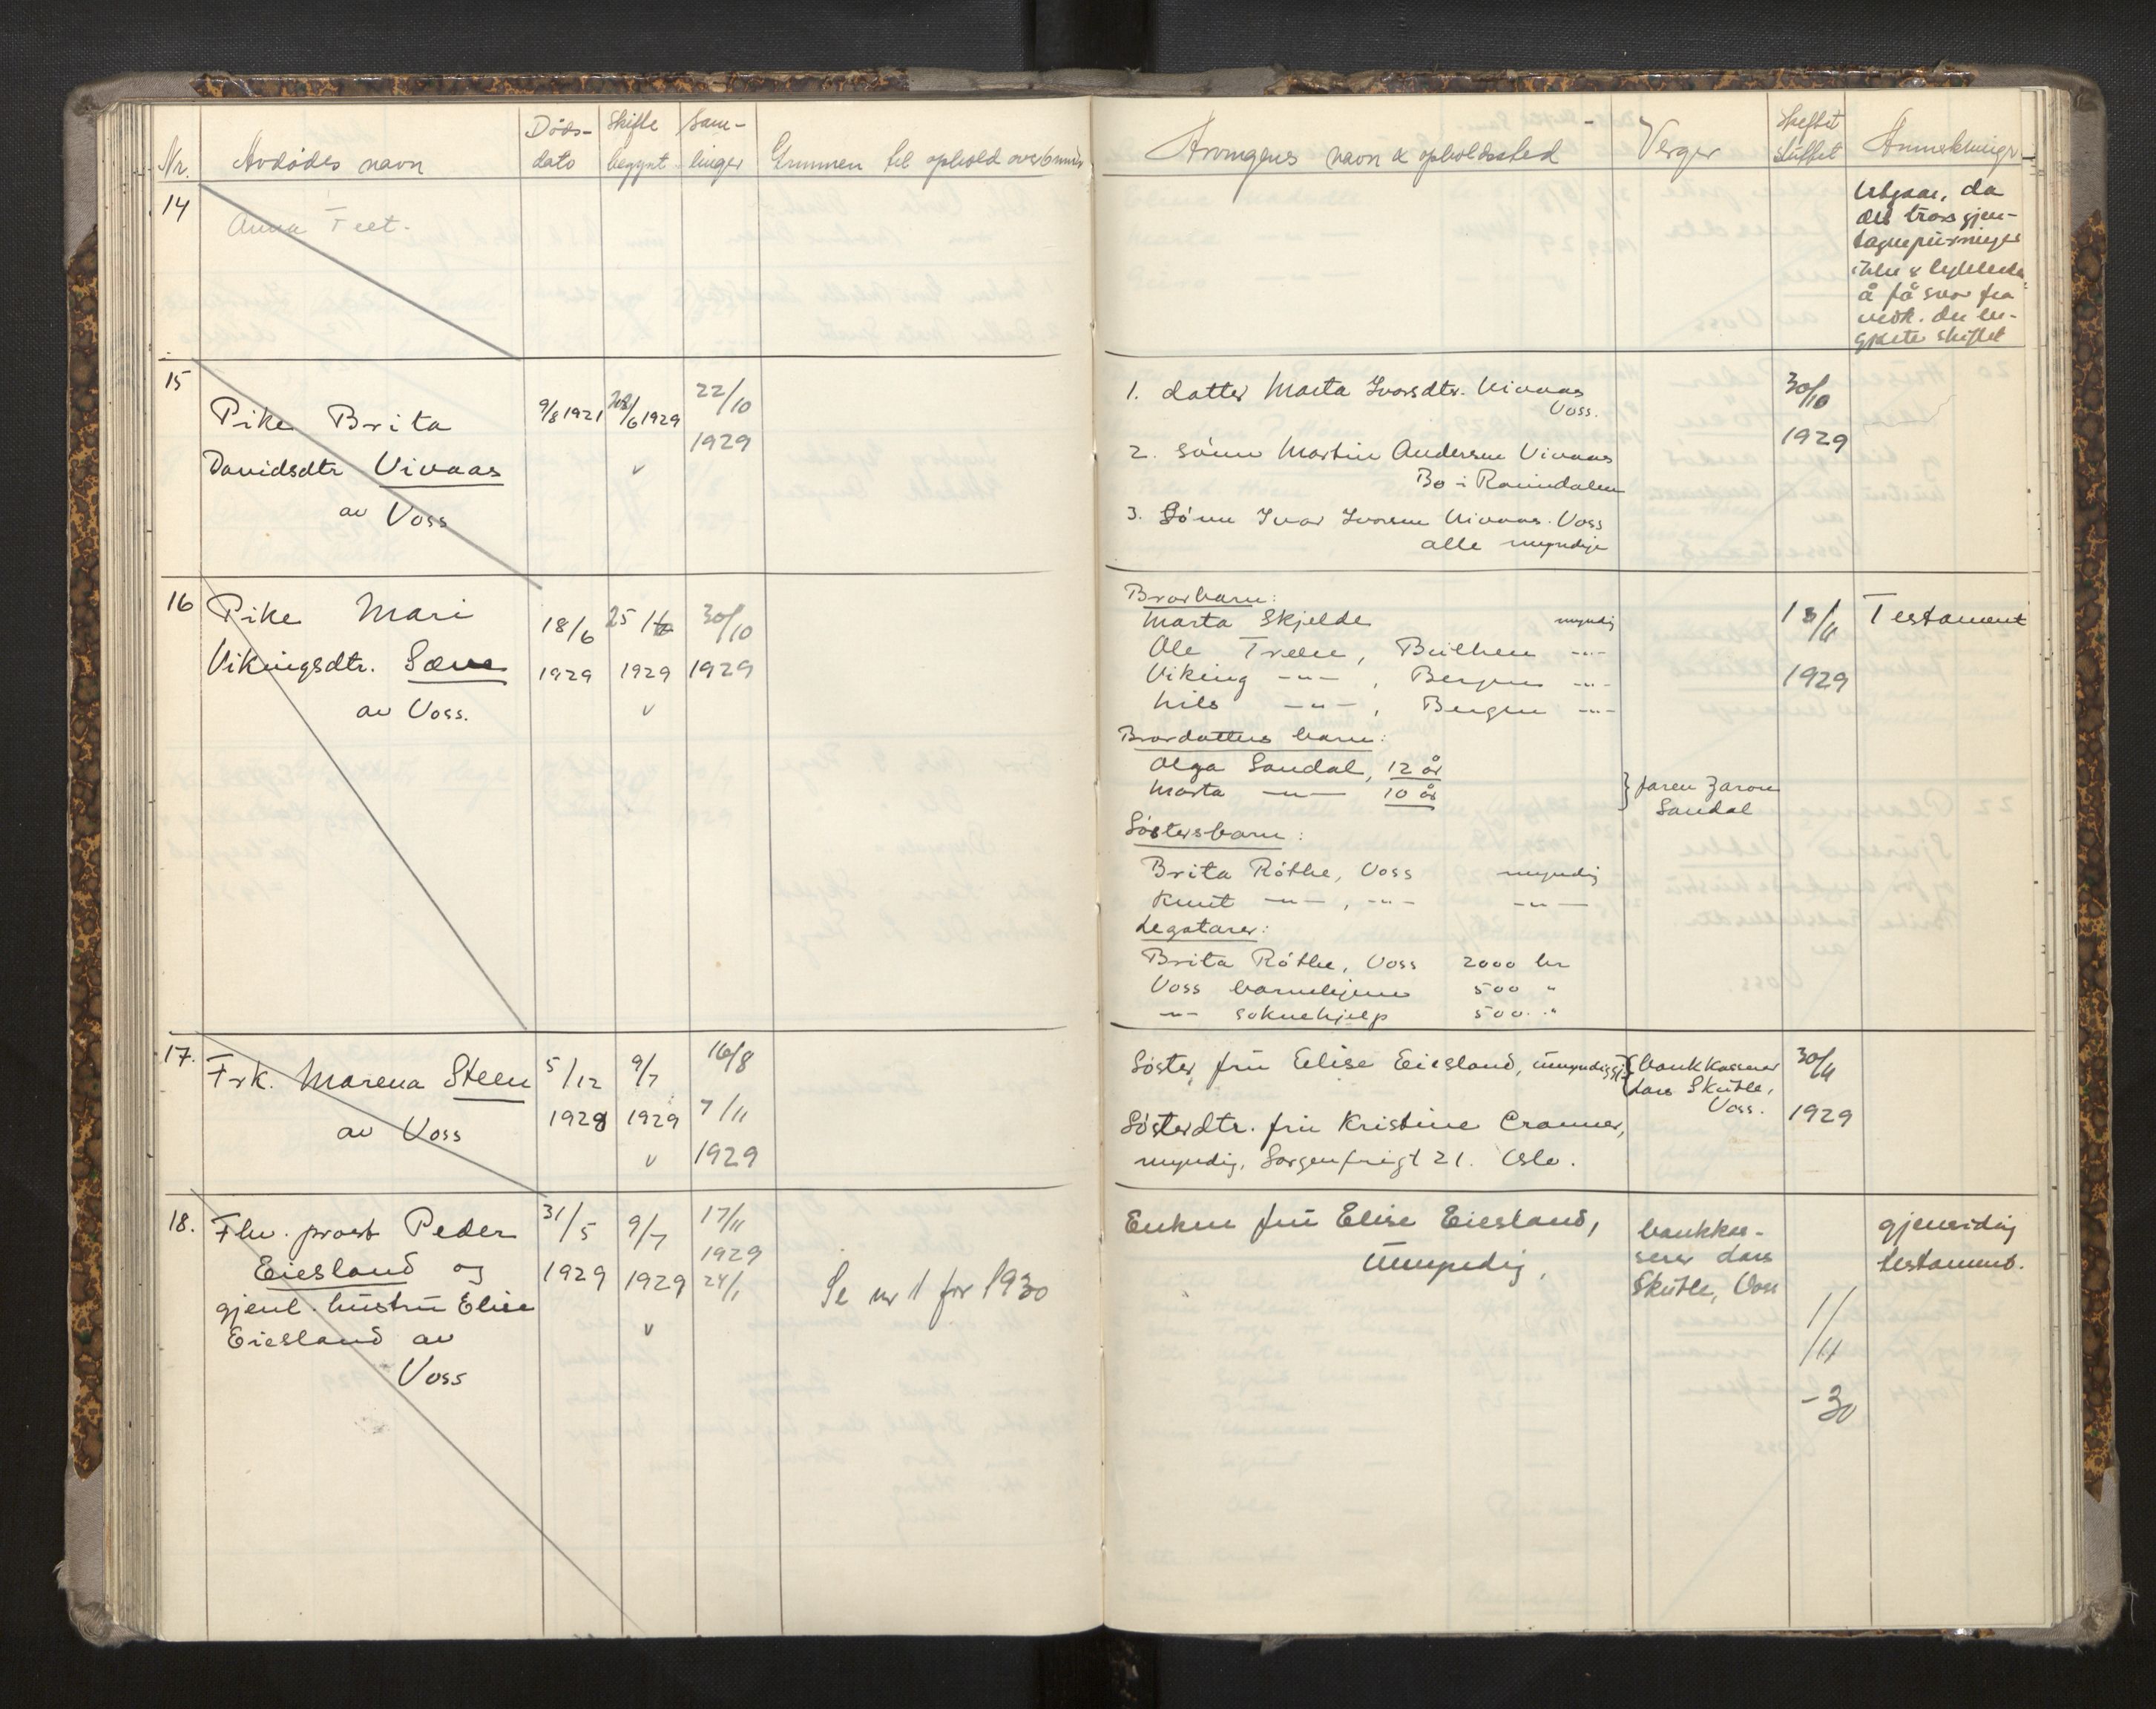 Nr. Avdødes navn Døds- dato Skifte begynt Sam- linger Grunnen til ophold over 6 mndr
Arvingens navn & opholdssted Verger Skiftet sluttet Anmerkninger
14
Anna Tvet.
Utgaar, da
det tross gjen-
tagne purringer
ikke er lykkedes
å få svar fra
vedk. der be-
gjærte skiftet
15
Pike Brita
Davidsdtr Vivaas
av Voss
9/8 1921
28/6 1929
v
22/10
1929
1. datter Marta Ivarsdtr. Vivaas
Voss.
2. sønn Martin Andersen Vivaas
Bø i Raundalen
3. Sønn Ivar Ivarsen Vivaas. Voss
alle myndige
30/10
1929
16
Pike Mari
Vikingsdtr. Sæve
av Voss.
18/6
1929
25/6
1929
v
30/10
1929
Brorbarn:
Marta Skjelde myndig
Ole Treen, Bulken -"-
Viking -"-, Bergen -"-
Nils -"-, Bergen -"-
Brordatters barn:
Olga Sandal, 12 år
Marta -"- 10 år
} faren
Sandal
Søstersbarn:
Brita Röthe, Voss myndig
Knut -"-, -"- -"-
Legatarer:
Brita Röthe, Voss 2000 kr
Voss barnehjem 500 "
-"- soknehjelp 500 . "
13/11
1929
Testament
17.
Frk. Marena Steen
av Voss
5/12
1928
9/7
1929
v
16/8
7/11
1929
Søster fru Elise Eiesland, umyndiggj. { bankkasserer
Lars Skutle,
Voss.
Søsterdtr. fru Kristine Cramer,
myndig, Sorgenfrigt 21. Oslo.
30/11
1929
18.
Fhv. prost Peder
Eiesland og
gjenl. hustru Elise
Eiesland av
Voss
31/5
1929
9/7
1929
v
17/11
1929
24/1
Se nr 1 for 1930
Enken fru Elise Eiesland,
Umyndig,
bankkas-
serer Lars
Skutle, Voss
1/
/11
-30
gjensidig
testament.